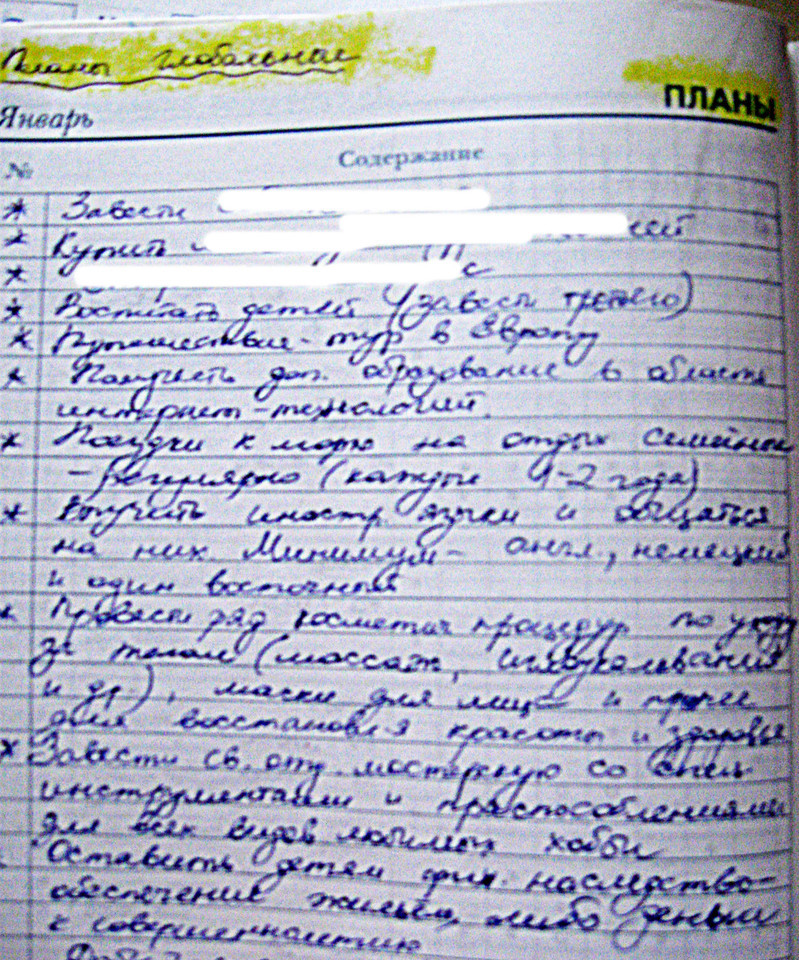 Планы глобальные
ПЛАНЫ
Январь
№ Содержание
* Завести
* Купить
*
* Воспитать детей (завести третьего)
* Путешествие - тур в Европу
* Получить доп. образование в области
интернет-технологий.
* Поездки к морю на отдых семейные
- регулярно (каждые 1-2 года)
* Выучить иностр. языки и общаться
на них. Минимум - англ., немецкий
и один восточный
* Провести ряд косметич процедур по уходу
за телом (массаж, иглоукалывания
и др.), маски для лица и прочее
для восстановл-я красоты и здоровья
* Завести св. отд. мастерскую со спец.
инструментами и приспособлениями
для всех видов любимых хобби
Оставить детям фин. наследство-
обеспечение жильём, либо деньги
к совершеннолетию